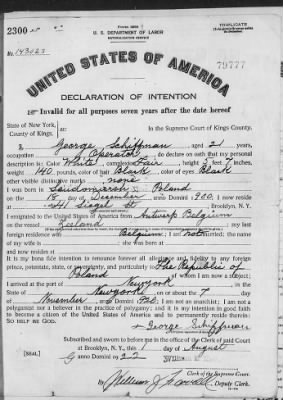 TRIPLICATE
2300
U. S. DEPARTMENT OF LABOR
NATURALIZATION SERVICE
No. 143023
UNITED STATES OF AMERICA
79777
DECLARATION OF INTENTION
Invalid for all purposes seven years after the date hereof
State of New York,
County of Kings,
In the Supreme Court of Kings County.
I, George Schiffman, aged 21 years,
occupation Operator, do declare on oath that my personal
description is: Color White, complexion Fair, height 5 feet 7 inches,
weight 140 pounds, color of hair Black, color of eyes Black
other visible distinctive marks none
I was born in Poland
on the 15 day of December, anno Domini 1900; I now reside
at 441 Siegel St, Brooklyn, N. Y.
I emigrated to the United States of America from Antwerp Belgium
on the vessel Zeland; my last
foreign residence was Belgium; I am not married; the name
of my wife is; she was born at
and now resides at
It is my bona fide intention to renounce forever all allegiance and fidelity to any foreign
prince, potentate, state, or sovereignty, and particularly to The Republic of
Poland, of whom I am now a subject;
I arrived at the port of Newyork, in the
State of Newyork, on or about the 7 day
of November, anno Domini 1920; I am not an anarchist; I am not a
polygamist nor a believer in the practice of polygamy; and it is my intention in good faith
to become a citizen of the United States of America and to permanently reside therein:
SO HELP ME GOD.
George Schiffman
Subscribed and sworn to before me in the office of the Clerk of said Court
at Brooklyn, N. Y., this 1 day of August
anno Domini 1922
[SEAL]
Clerk of the Supreme Court.
By William J., Deputy Clerk.